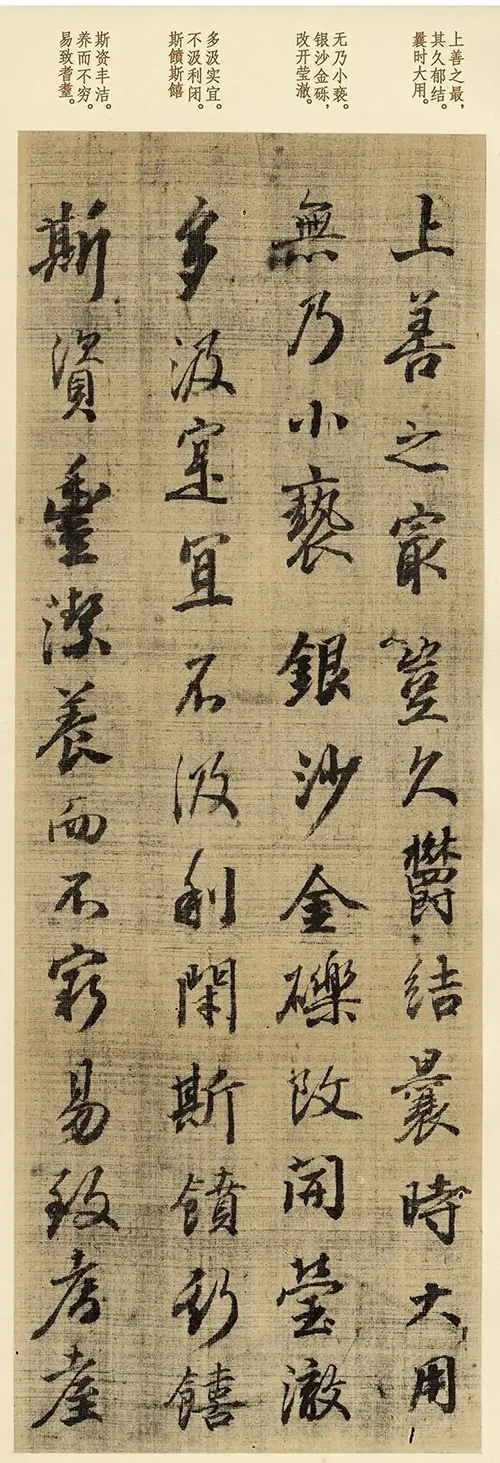 上善之最，
其久郁结。
曩时大用。
无乃小亵。
银沙金砾，
改开莹澈。
多汲实宜。
不汲利闭。
斯饙斯饎
斯资丰洁。
养而不穷。
易致耆耋。
上善之冣豈久鬱結曩時大用
無乃小褻銀沙金礫改開瑩澈
多汲寔宜不汲利閑斯饙斯饎
斯資豐潔養而不窮易致耆耋